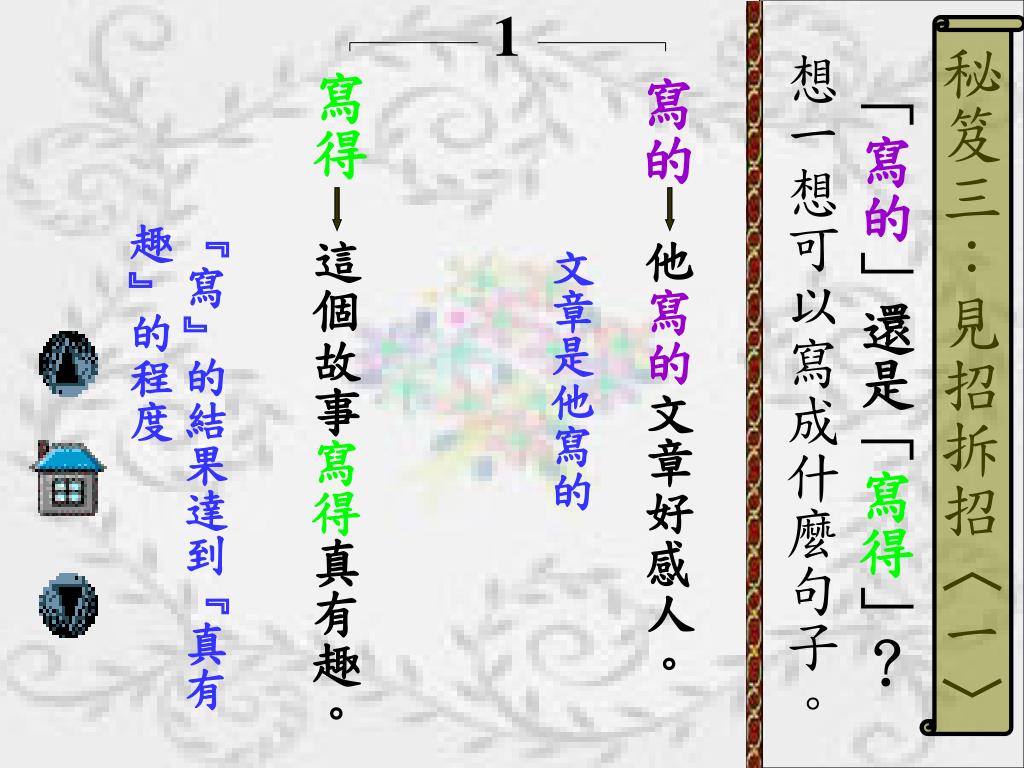 秘笈三：見招拆招〈一〉
「寫的」還是「寫得」？
想一想可以寫成什麼句子。
1
寫的
他寫的文章好感人。
文章是他寫的
寫得
這個故事寫得真有趣。
『寫』的結果達到『真有
趣』的程度